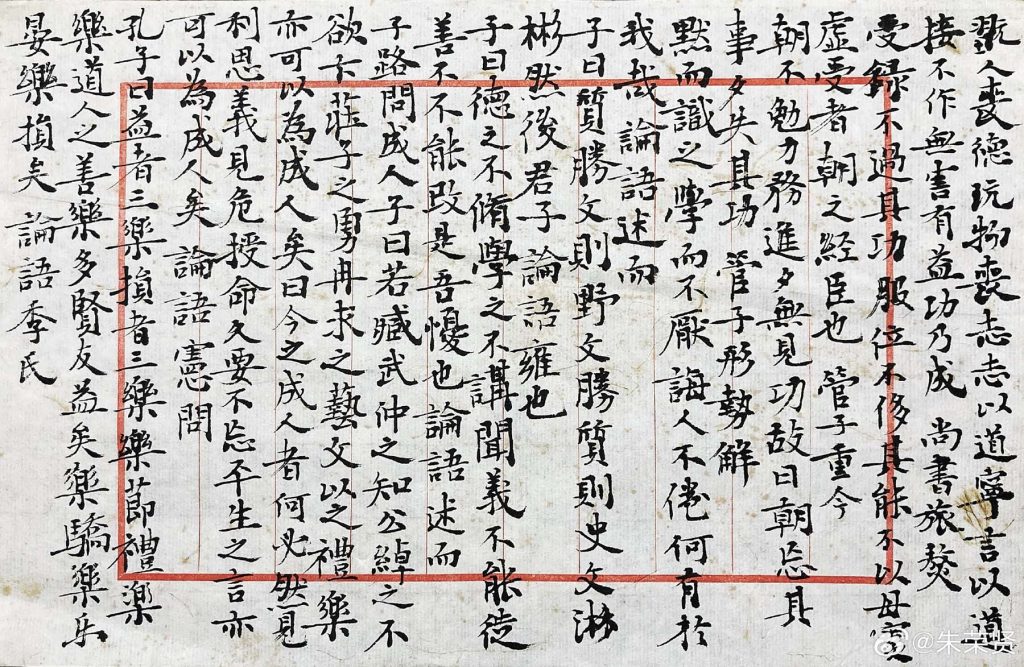 翫人喪德玩物喪志志以道寧言以道
接不作無害有益功乃成 尚書旅獒
受錄不過其功服位不侈其能不以毋實
虛受者朝之経臣也 管子重今
朝不勉力務進夕無見功故曰朝忘其
事夕失其功 管子形勢解
默而識之學而不厭誨人不倦何有於
我哉 論語述而
子曰質勝文則野文勝質則史文
彬然後君子 論語雍也
子曰德之不脩學之不講聞義不能徙
善不不能改是吾憂也 論語述而
子路問成人子曰若臧武仲之知公綽之不
欲卞莊子之勇冉求之藝文以之禮樂
亦可以為成人矣曰今之成人者何必然見
利思義見危授命久要不忘平生之言亦
可以為成人矣 論語憲問
孔子曰益者三樂損者三樂樂節禮樂
樂道人之善樂多賢友益矣樂驕樂樂
晏樂損矣 論語季氏
@朱荣贤